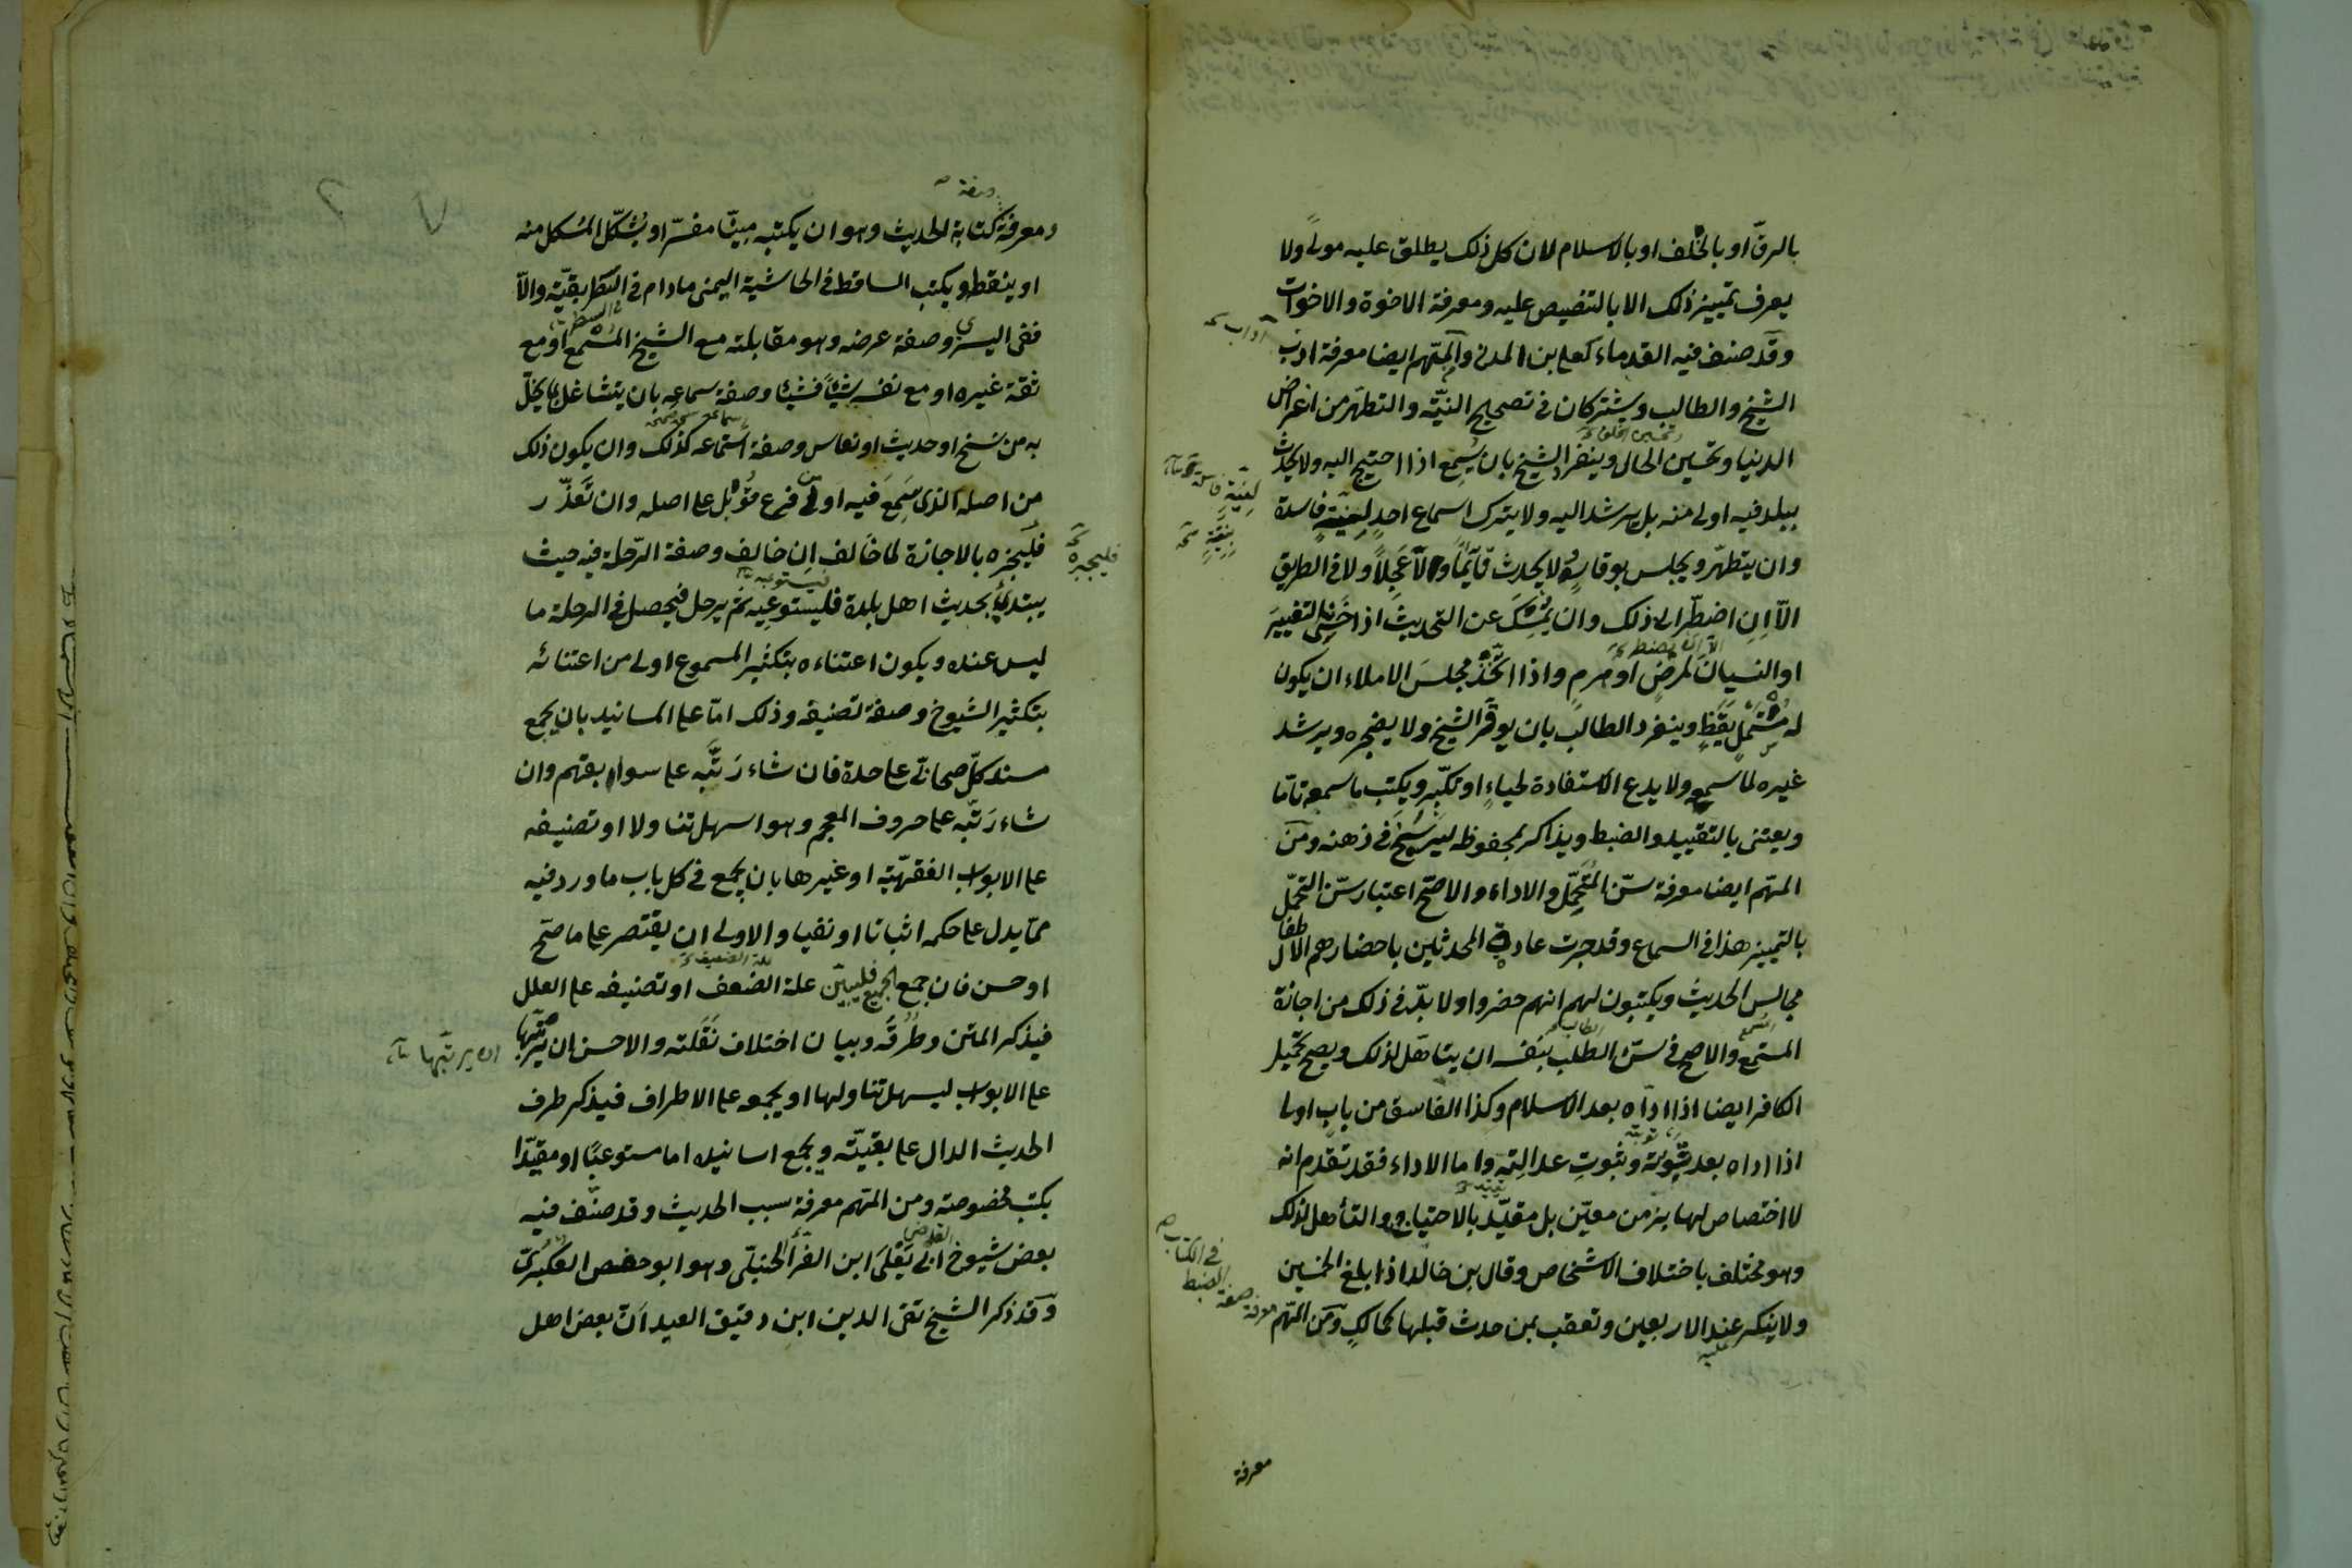 بالرق او بالحلف او بالاسلام لان كل ذلك يطلق عليه مولى ولا
يعرف تمييز ذلك الا بالتنصيص عليه ومعرفة الاخوة والاخوات
وقد صنف فيه القدماء كعلي بن المدني والمهم ايضا معرفة ادب
آداب
الشيخ والطالب ويشتركان في تصحيح النيّة والتطهر من اغراض
الدنيا وتحسين الحال وينفرد الشيخ بان يُسمِع اذا احتيج اليه ولا يحدث
وتحسين الخلق
ببلد فيه اولى منه بل يرشد اليه ولا يترك اسماع احدٍ لنيّةٍ فاسدة
وان يتطهّر ويجلس بوقار ولا يحدث قائمًا ولا عَجِلًا ولا في الطريق
الّا اِنِ اضطّر الى ذلك وان يُمسِكَ عن التحديث اذا خَشِيَ التغييرَ
او النسيانَ لمرضٍ او هرمٍ واذا اتّخذ مجلسَ الاملاء ان يكون
له مُستملٍ يَقِظٍ وينفرد الطالب بان يوقّر الشيخ ولا يضجره ويرشد
غيره لما سمعه ولا يدع الاستفادة لحياءٍ او تكبّرٍ ويكتب ما سمعه تامّا
ويعتني بالتقييد والضبط ويذاكر بمحفوظه ليَرسَخَ في ذهنه ومن
المهّم ايضا معرفة سنّ التحمّل والاداء والاصحّ اعتبار سنّ التحمّل
بالتمييز هذا في السماع وقد جرت عادة المحدثين باحضارهم الاطفال
مجالس الحديث ويكتبون لهم انهم حضروا ولا بدّ في ذلك من اجازة
المستمع والاصح في سنّ الطلب بنفسه ان يتاهّل لذلك ويصح تحمّل
المسمع
الطالب
الكافر ايضا اذا ادّاه بعد الاسلام وكذا الفاسق من باب اولى
اذا اداه بعد توبته وثبوتِ عدالتِه واما الاداء فقد تقدم انه
توبته
لا اختصاص لها بزمن معيّن بل مقيّد بالاحتياج والتأهل لذلك
وهو مختلف باختلاف الاشخاص وقال بن خالد اذا بلغ الخمسين
ولا ينكر عند الاربعين وتعقب بمن حدث قبلها كمالكٍ ومن المهّم
عليه
معرفة صفة الضبط
في الكتاب
معرفة
وصفة
ومعرفة كتابة الحديث وهو ان يكتبه مبيّنا مفسّرا ويُشكّل المُشكل منه
او ينقطه ويكتب الساقط في الحاشية اليمنى مادام في السّطر بقيّة والّا
السطر
ففي اليسرى وصفة عرضه وهو مقابلته مع الشيخ المُسمِع او مع
ثقة غيره او مع نفسه شيئًا فشيئا وصفة سماعه بان يتشاغل بما يخلّ
به من نسخ او حديث او نعاس وصفة اسماعه كذلك وان يكون ذلك
من اصله الذي سَمِعَ فيه او من فرع قُوبل على اصله وان تَعَذّر
فليَجبُره بالاجازة لما خالف اِن خالف وصفة الرّحلة فيه حيث
فليجبره
يبتدئ بحديث اهل بلدة فليَستوعِبه ثم يرحل فيحصل في الرحلة ما
فيستوعبه
ليس عنده ويكون اعتناءه بتكثير المسموع اولى من اعتنائه
بتكثير الشيوخ وصفة تصنيفه وذلك امّا على المسانيد بان يجمع
مسند كلّ صحابيّ على حدة فان شاء رَتّبَه على سوابقهم وان
شاء رَتّبَه على حروف المعجم وهو اسهل تناولا او تصنيفه
على الابواب الفقهيّة او غيرها بان يجمع في كل باب ما ورد فيه
ممّا يدل على حكمه اثباتا او نفيا والاولى ان يقتصر على ما صحّ
او حسن فان جمع الجميع فليبيّن علة الضعف او تصنيفه على العلل
علة الضعيف
فيذكر المتن وطُرُقَه وبيان اختلاف نَقَلته والاحسن ان يرتّبها
ان يرتّبها
على الابواب ليسهل تناولها او يجمعه على الاطراف فيذكر طرف
الحديث الدال على بقيّته ويجمع اسانيده اما مستوعبًا او مقيّدا
بكتب مخصوصة ومن المهّم معرفة سبب الحديث وقد صنّف فيه
بعض شيوخ ابي يَعلَى ابن الفرّاء الحنبلي وهو ابو حفص العكبري
القاضي
وقد ذكر الشيخ تقي الدين ابن دقيق العيد انّ بعض اهل